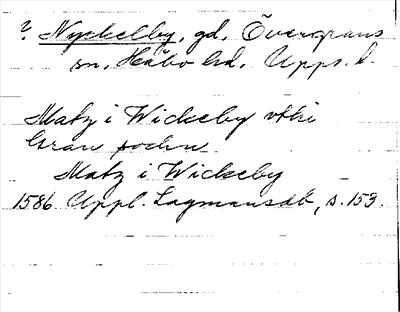 ? Nyckelby, gd, Övergrans
sn, Håbo hd, Upps. l.
Matz i Wickeby vthi
Gran soden
Matz i Wickeby
1586 Uppl. Lagmansdb, s. 153.